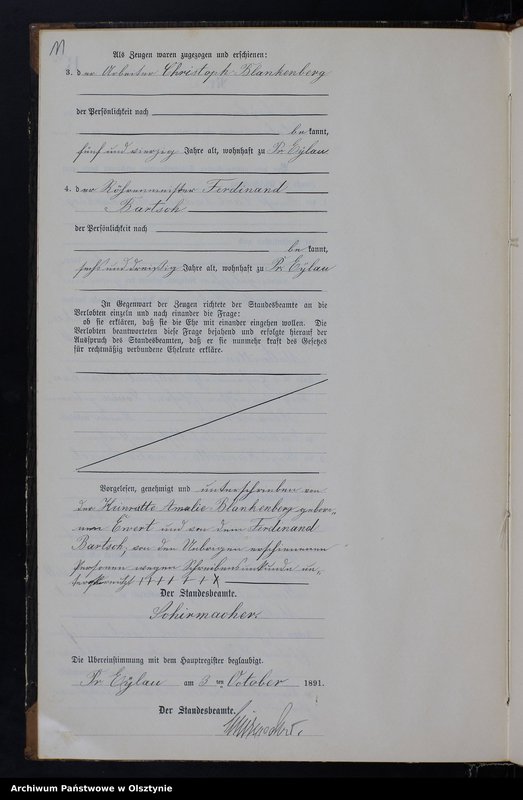 11
Als Zeugen waren zugezogen und erschienen:
3. der Arbeiter Christoph Blankenberg
der Persönlichkeit nach
be kannt,
fünf und vierzig Jahre alt, wohnhaft zu Pr. Eylau
4. der Röhrenmeister Ferdinand
Bartsch
der Persönlichkeit nach
be kannt,
sechs und dreißig Jahre alt, wohnhaft zu Pr. Eylau
In Gegenwart der Zeugen richtete der Standesbeamte an die
Verlobten einzeln und nach einander die Frage:
ob sie erklären, daß sie die Ehe mit einander eingehen wollen. Die
Verlobten beantworteten diese Frage bejahend und erfolgte hierauf der
Ausspruch des Standesbeamten, daß er sie nunmehr kraft des Gesetzes
für rechtmäßig verbundene Eheleute erkläre.
Vorgelesen, genehmigt und unterschrieben von
der Amalie Blankenberg gebor-
nen Ewert und von dem Ferdinand
Bartsch, von den Uebrigen erschienenen
Personen wegen Schreibensunkunde un-
terkreuzt
Der Standesbeamte.
Schirmacher.
Die Übereinstimmung mit dem Hauptregister beglaubigt.
Pr. Eylau am 3 ten October 1891.
Der Standesbeamte.
Schirmacher.
Archiwum Państwowe w Olsztynie